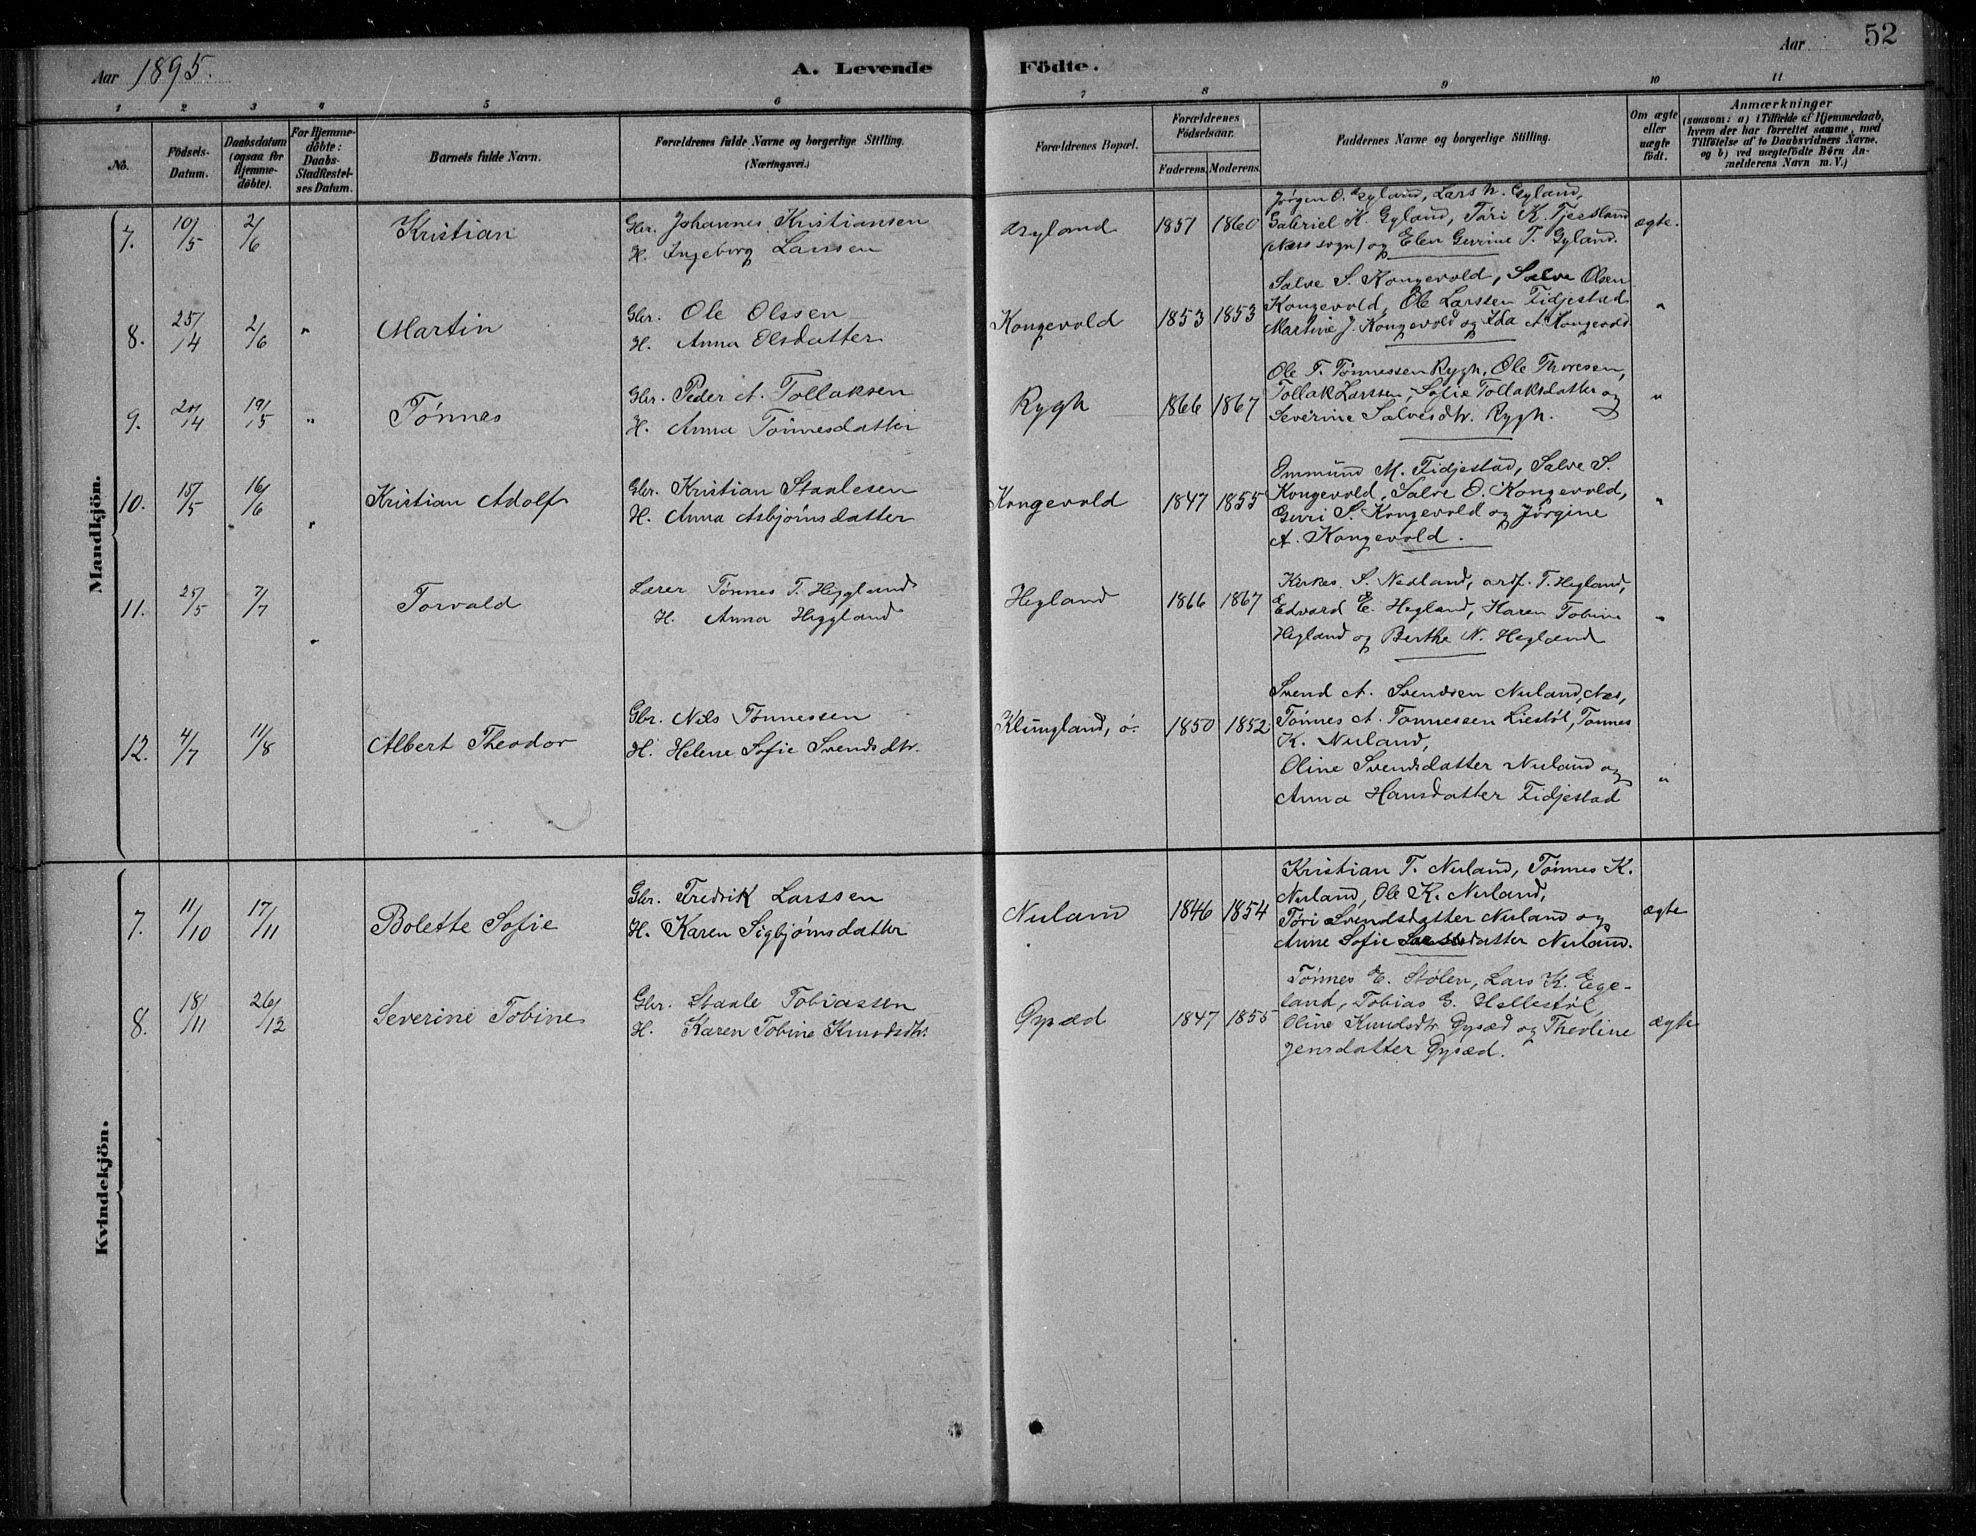 52
Aar 1895.
A. Levende Födte.
Aar
1 2 3 4 5 6 7 8 9 10 11
No.
Födsels-Datum.
Daabsdatum (ogsaa for Hjemme-döbte).
For Hjemme-döbte: Daabs-Stadfæstel-ses Datum.
Barnets fulde Navn.
Forældrenes fulde Navne og borgerlige Stilling. (Næringsvei.)
Forældrenes Bopæl.
Forældrenes Födselsaar.
Faderens. Moderens.
Faddernes Navne og borgerlige Stilling.
Om ægte eller uægte födt.
Anmærkninger
(saasom: a) i Tilfælde af Hjemmedaab,
hvem der har forrettet samme, med
Tilföielse af to Daabsvidners Navne,
og b) ved uægtefödte Börn An-
melderens Navn m. V.)
Mandkjön.
7. 10/5 2/6 Kristian
Gbr. Johannes Kristiansen
H. Ingeborg Larssen
Gyland 1857 1860
Jørgen O. Gyland, Lars N. Gyland,
Gabriel K. Gyland, Tori K. Tjersland
(Næs sogn) og Elen Gurine T. Gyland.
ægte.
8. 25/4 2/6 " Martin
Gbr. Ole Olssen
H. Anna Olsdatter
Kongevold 1853 1853
Salve S. Kongevold, Salve Olsen
Kongevold, Ole Larssen Fidjestad
Martine J. Kongevold og Ida A. Kongevold
"
9. 20/4 19/5 " Tønnes
Gbr. Peder A. Tollaksen
H. Anna Tønnesdatter
Rygh 1866 1867
Ole T. Tønnessen Rygh, Ole Thoresen,
Tollak Larssen, Sofie Tollaksdatter og
Severine Salvesdtr. Rygh.
"
10. 15/5 16/6 " Kristian Adolf
Gbr. Kristian Staalesen
H. Anna Asbjørnsdatter
Kongevold 1847 1855
Ommund M. Fidjestad, Salve S.
Kongevold, Salve O. Kongevold,
Guri S. Kongevold og Jørgine
A. Kongevold.
"
11. 25/5 7/7 " Torvald
Lærer Tønnes T. Heggland
H. Anna Heggland
Hegland 1866 1867
Kirkes. S. Nedland, ardf. T. Hegland,
Edvard E. Hegland, Karen Tobine
Hegland og Berthe N. Hegland
"
12. 4/7 11/8 Albert Theodor
Gbr. Nils Tønnessen
H. Helene Sofie Svendsdtr.
Klungland, ø. 1850 1852
Svend A. Svendsen Nuland, Næs,
Tønnes A. Tønnessen Liestøl, Tønnes
K. Nuland,
Oline Svendsdatter Nuland og
Anna Hansdatter Fidjestad
"
Kvindekjön.
7. 11/10 17/11 Bolette Sofie
Gbr. Fredrik Larssen
H. Karen Sigbjørnsdatter
Nuland 1846 1854
Kristian T. Nuland, Tønnes K.
Nuland, Ole K. Nuland,
Tori Svendsdatter Nuland og
Anne Sofie Larsdatter Nuland.
ægte
8. 18/11 26/12 Severine Tobine
Gbr. Staale Tobiassen
H. Karen Tobine Knudsdtr.
Gysæd 1847 1855
Tønnes E. Stølen, Lars K. Ege-
land, Tobias G. Hellestøl,
Oline Knudsdtr. Gysæd og Theoline
Jensdatter Gysæd.
ægte